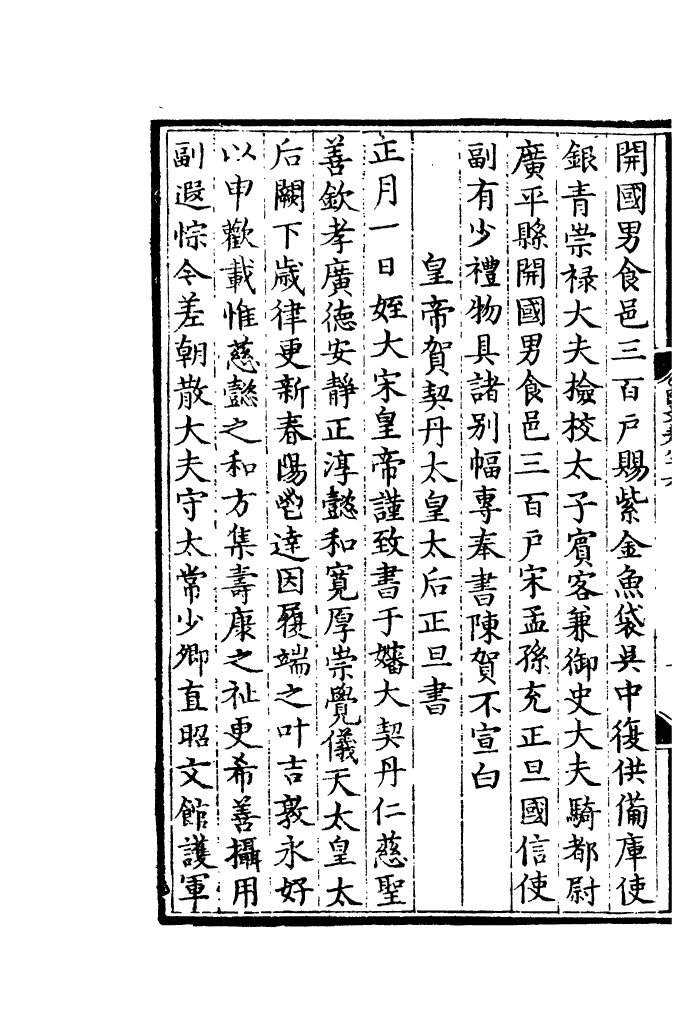 開國男食邑三百戶賜紫金魚袋吳中復供備庫使
銀青崇禄大夫撿校太子賓客兼御史大夫騎都尉
廣平縣開國男食邑三百戶宋孟孫充正旦國信使
副有少禮物具諸别幅專奉書陳賀不宣白
皇帝賀契丹太皇太后正旦書
正月一日姪大宋皇帝謹致書于嬸大契丹仁慈聖
善欽孝廣德安靜正淳懿和寬厚崇覺儀天太皇太
后闕下歲律更新春陽茲達因履端之叶吉敦永好
以申歡載惟慈懿之和方集壽康之祉更希善攝用
副遐悰今差朝散大夫守太常少卿直昭文館護軍